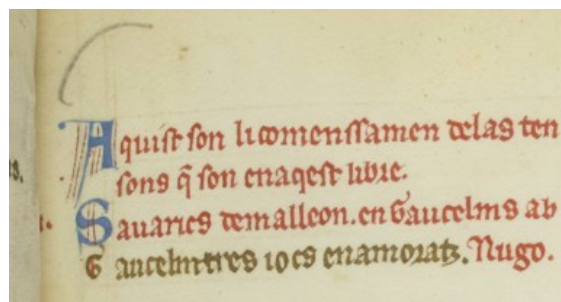 Aquist son li comenssamen delas ten
sons q̃ son enaqest libre.
Sauarics demalleon. en Gaucelms ab
Gaucelm tres iocs enamoratz. Nugo.